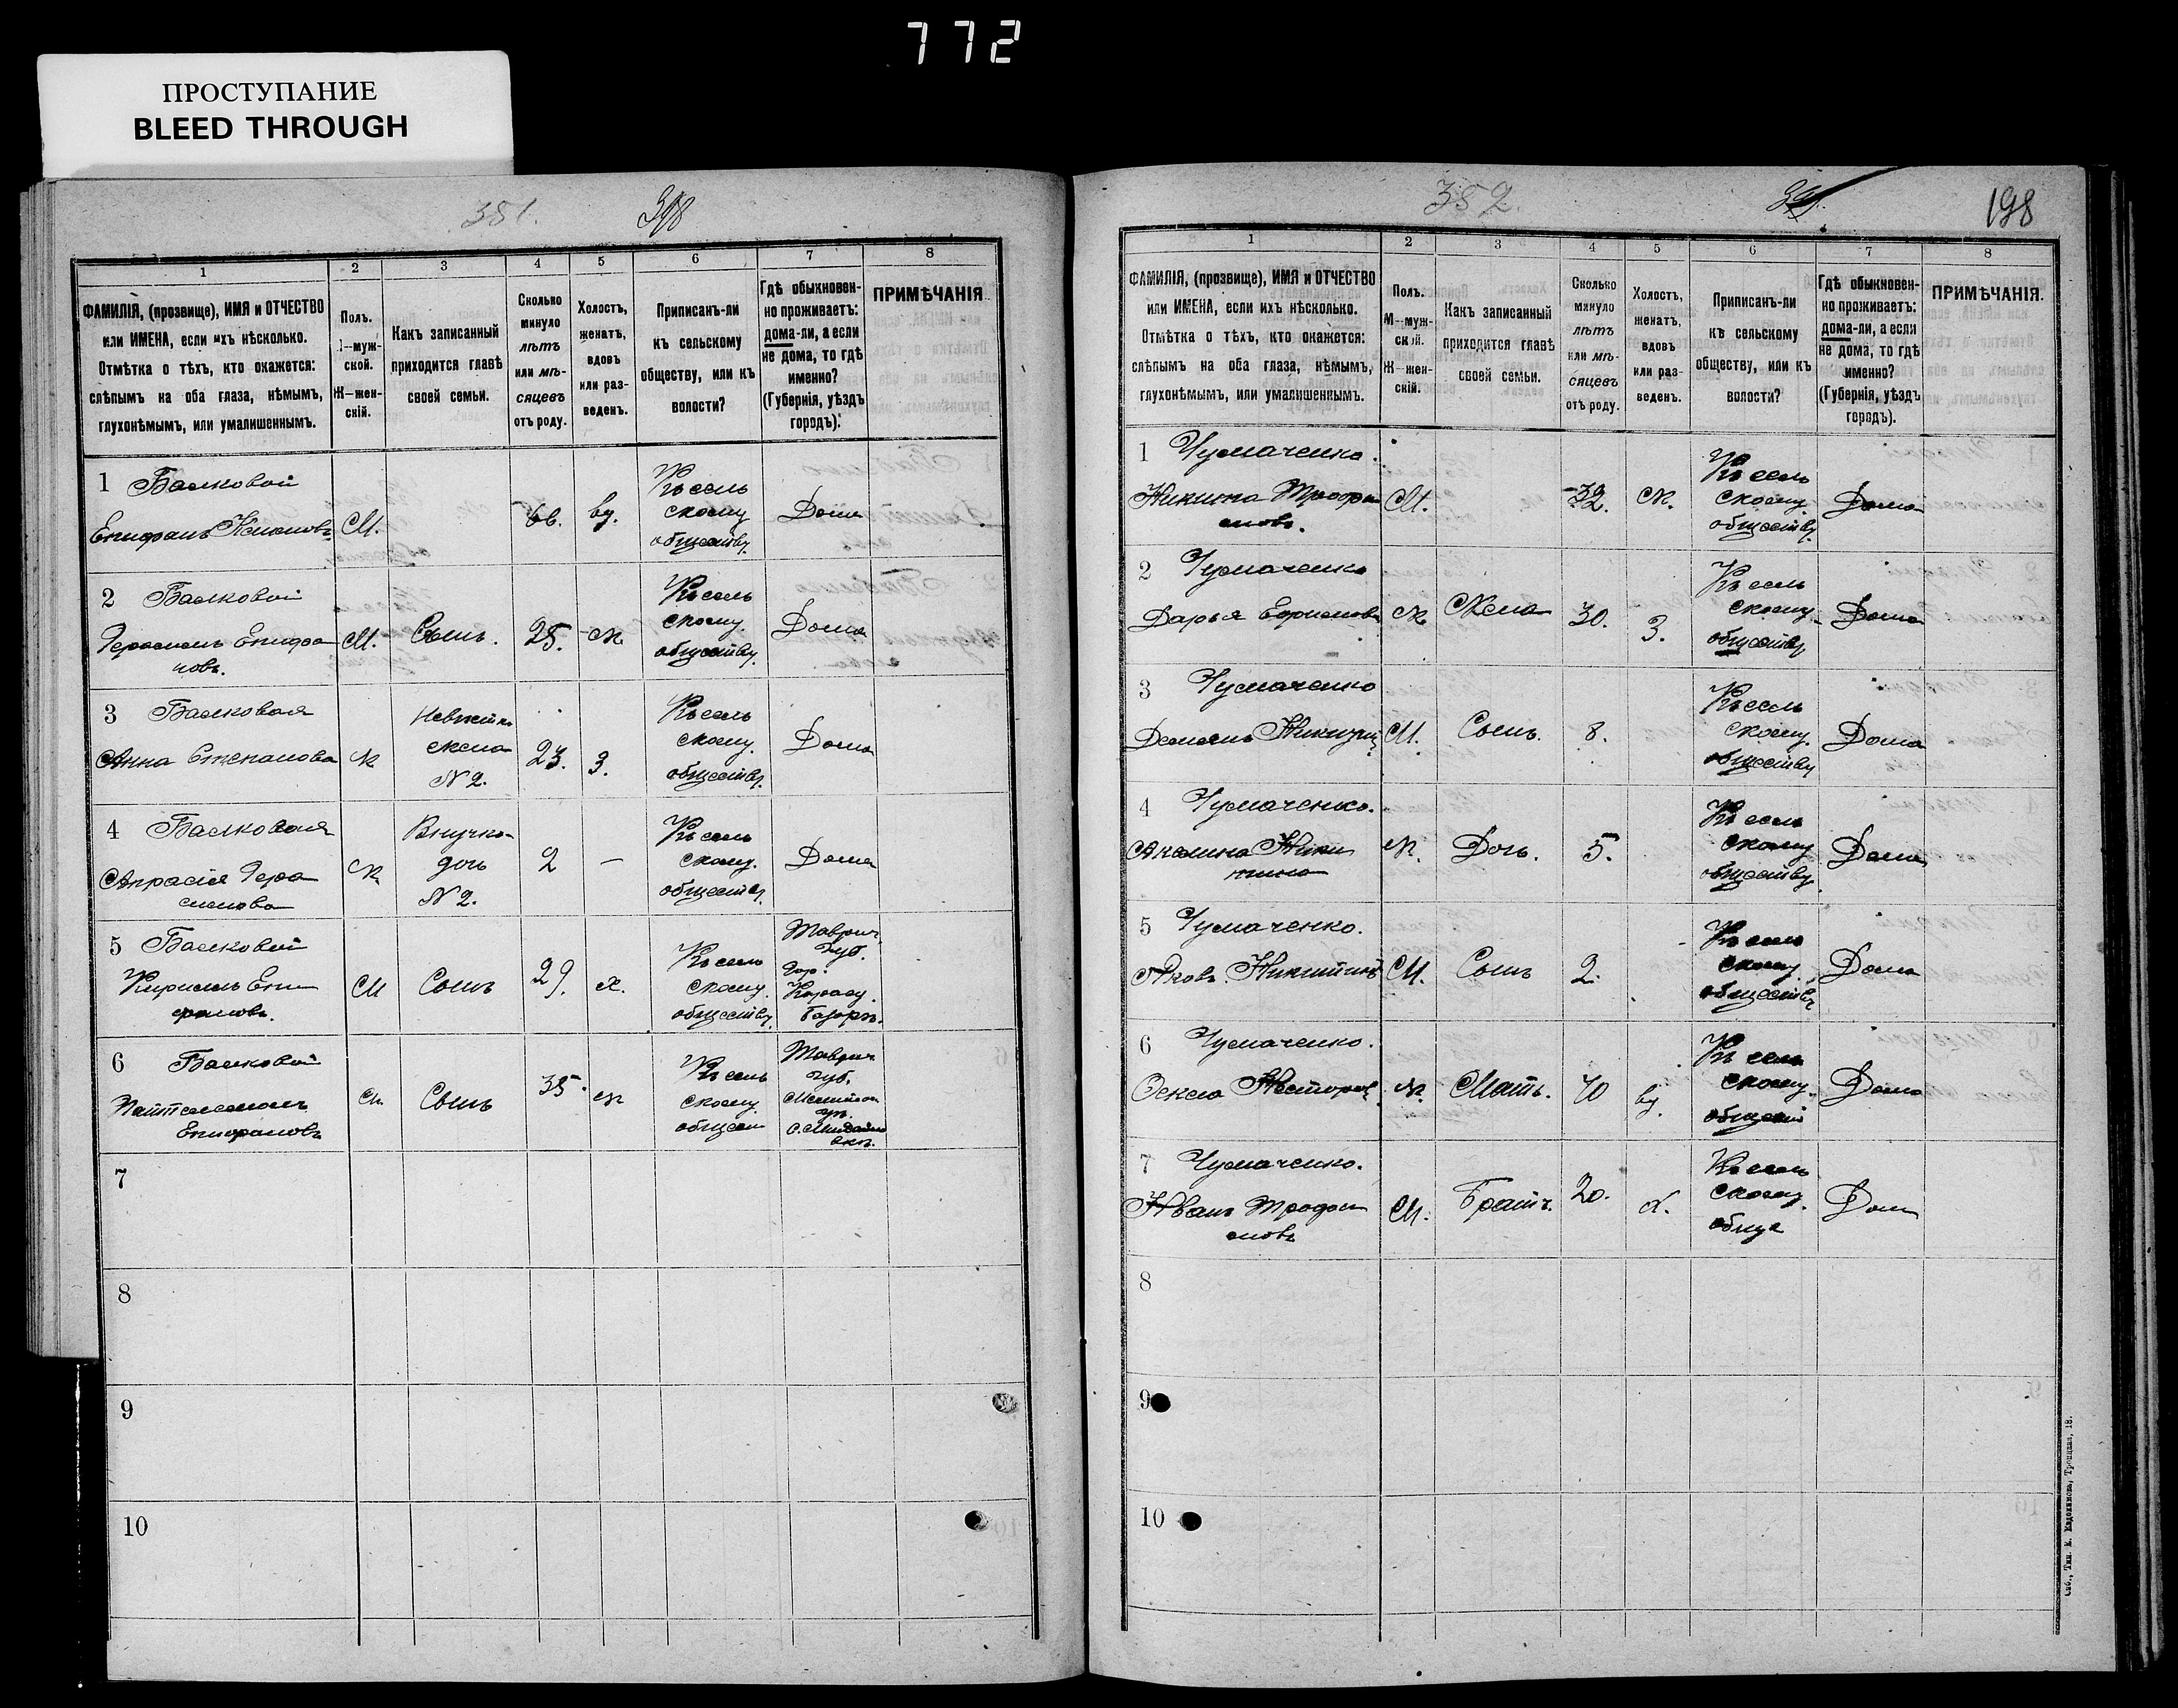 772
ПРОСТУПАНИЕ
BLEED THROUGH
351.
1 2 3 4 5 6 7 8
ФАМИЛІЯ, (прозвище), ИМЯ и ОТЧЕСТВО или ИМЕНА, если ихъ нѣсколько.
Отмѣтка о тѣхъ, кто окажется: слѣпымъ на оба глаза, нѣмымъ, глухонѣмымъ, или умалишеннымъ.
Полъ. М—мужской. Ж—женскій.
Какъ записанный приходится главѣ своей семьи.
Сколько минуло лѣтъ или мѣсяцевъ отъ роду.
Холостъ, женатъ, вдовъ или разведенъ.
Приписанъ-ли къ сельскому обществу, или къ волости?
Гдѣ обыкновенно проживаетъ: дома-ли, а если не дома, то гдѣ именно? (Губернія, уѣздъ городъ).
ПРИМѢЧАНІЯ
1 Балковой
Епифанъ М. 66. ву. Къ сельскому обществу. Дома
2 Балковой
Герасимъ Епифановъ. М. Сынъ. 25. ж Къ сельскому обществу. Дома
3 Балковая
Анна Степанова ж Невѣстка жена N 2. 23. З. Къ сельскому обществу. Дома
4 Балковая
Апрасія Герасимова ж Внучка дочь N 2. 2 — Къ сельскому обществу. Дома
5 Балковой
Кирилъ Епифановъ. М Сынъ 29. х. Къ сельскому обществу. Таврич. губ. гор. Карасу Базаръ.
6 Балковой
Епифановъ М. Сынъ 35. ж Къ сельскому общест Таврич губ.
7
8
9
10
352.
198
1 2 3 4 5 6 7 8
ФАМИЛІЯ, (прозвище), ИМЯ и ОТЧЕСТВО или ИМЕНА, если ихъ нѣсколько.
Отмѣтка о тѣхъ, кто окажется: слѣпымъ на оба глаза, нѣмымъ, глухонѣмымъ, или умалишеннымъ.
Полъ. М—мужской. Ж—женскій.
Какъ записанный приходится главѣ своей семьи.
Сколько минуло лѣтъ или мѣсяцевъ отъ роду.
Холостъ, женатъ, вдовъ или разведенъ.
Приписанъ-ли къ сельскому обществу, или къ волости?
Гдѣ обыкновенно проживаетъ: дома-ли, а если не дома, то гдѣ именно? (Губернія, уѣздъ городъ).
ПРИМѢЧАНІЯ.
1 Чумаченко.
Никита М. 32. ж. Къ сельскому обществу. Дома
2 Чумаченко
Дарья ж Жена 30. З. Къ сельскому обществу Дома
3 Чумаченко
М. Сынъ. 8. Къ сельскому обществу Дома
4 Чумаченко.
Акелина Никитина ж. Дочь. 5. Къ сельскому обществу Дома
5 Чумаченко.
Яковъ Никитинъ М. Сынъ 2. Къ сельскому обществу Дома
6 Чумаченко.
ж. Мать. 70 ву. Къ сельскому Дома
7 Чумаченко.
Иванъ М. Братъ. 20. х. Къ сельскому обще Дома
8
9
10
Спб., Тип. Е. Евдокимова, Троицкая, 18.